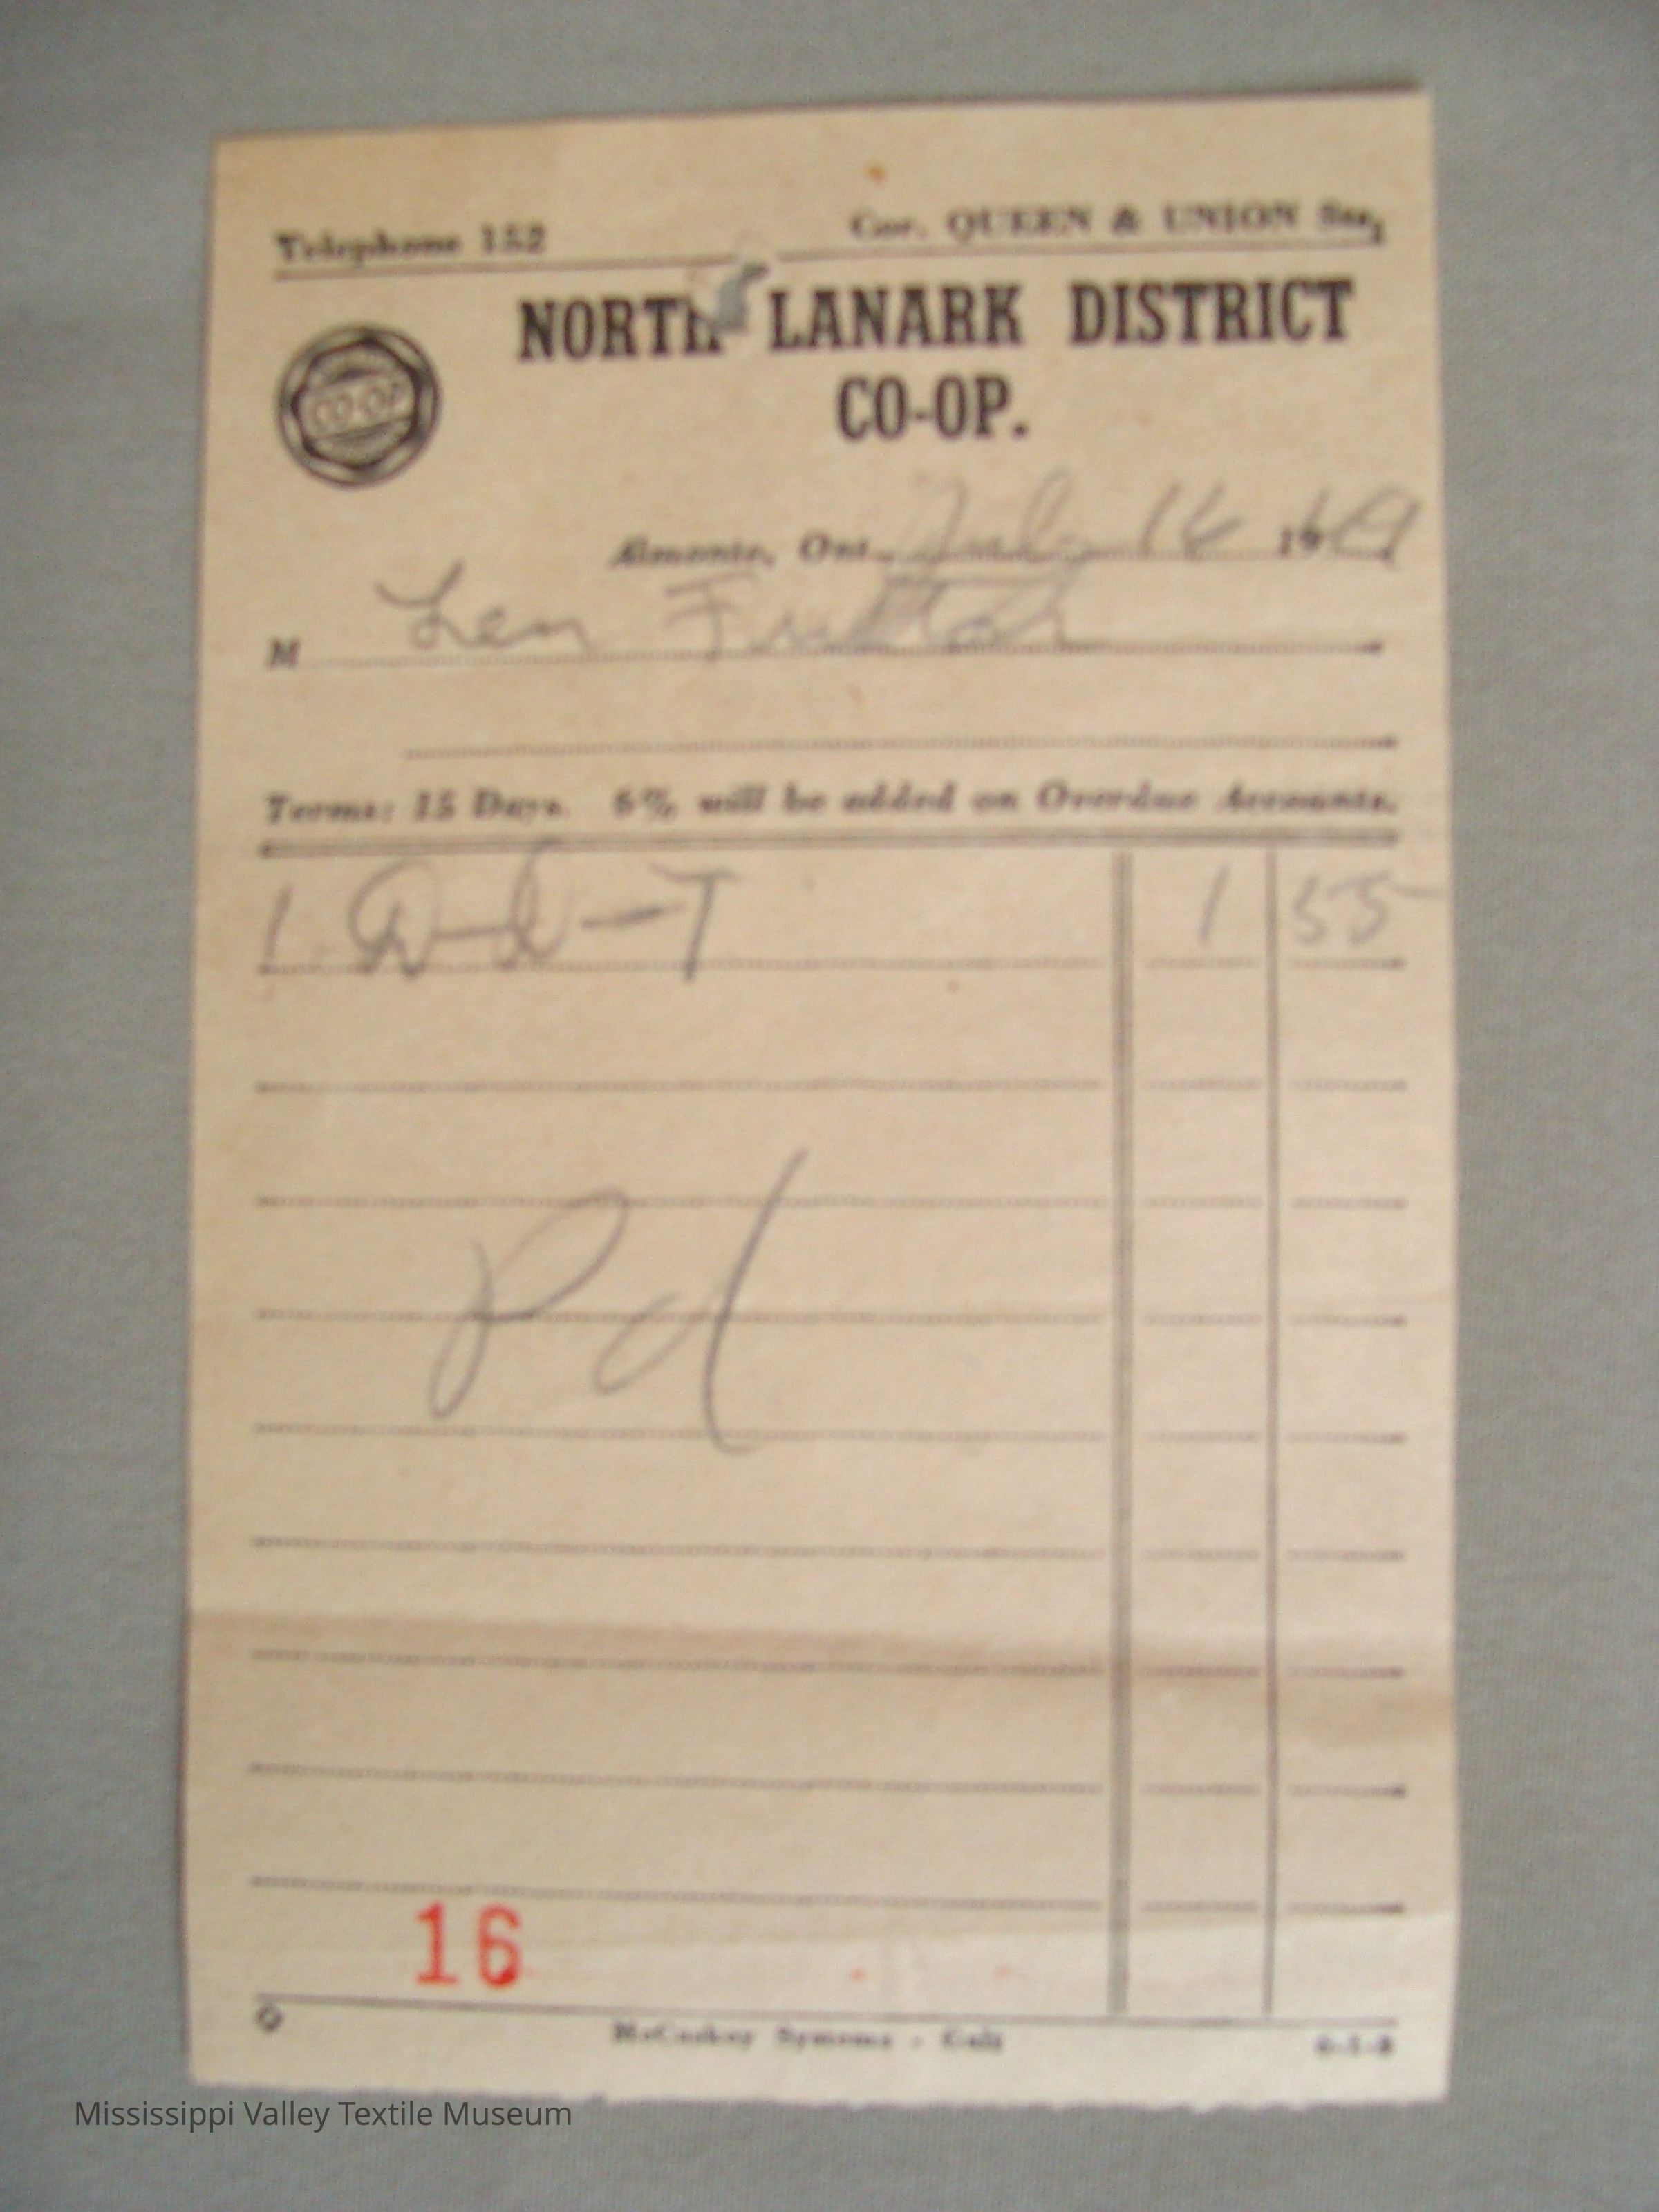 Telephone 152 Cor. QUEEN & UNION Sts.
NORTH LANARK DISTRICT
CO-OP.
CO-OP
Almonte, Ont. July 16 19
M Len Fulton
Terms: 15 Days. 6% will be added on Overdue Accounts.
1 D-D-T 1 55
Pd
16
McCaskey Systems - Galt
Mississippi Valley Textile Museum